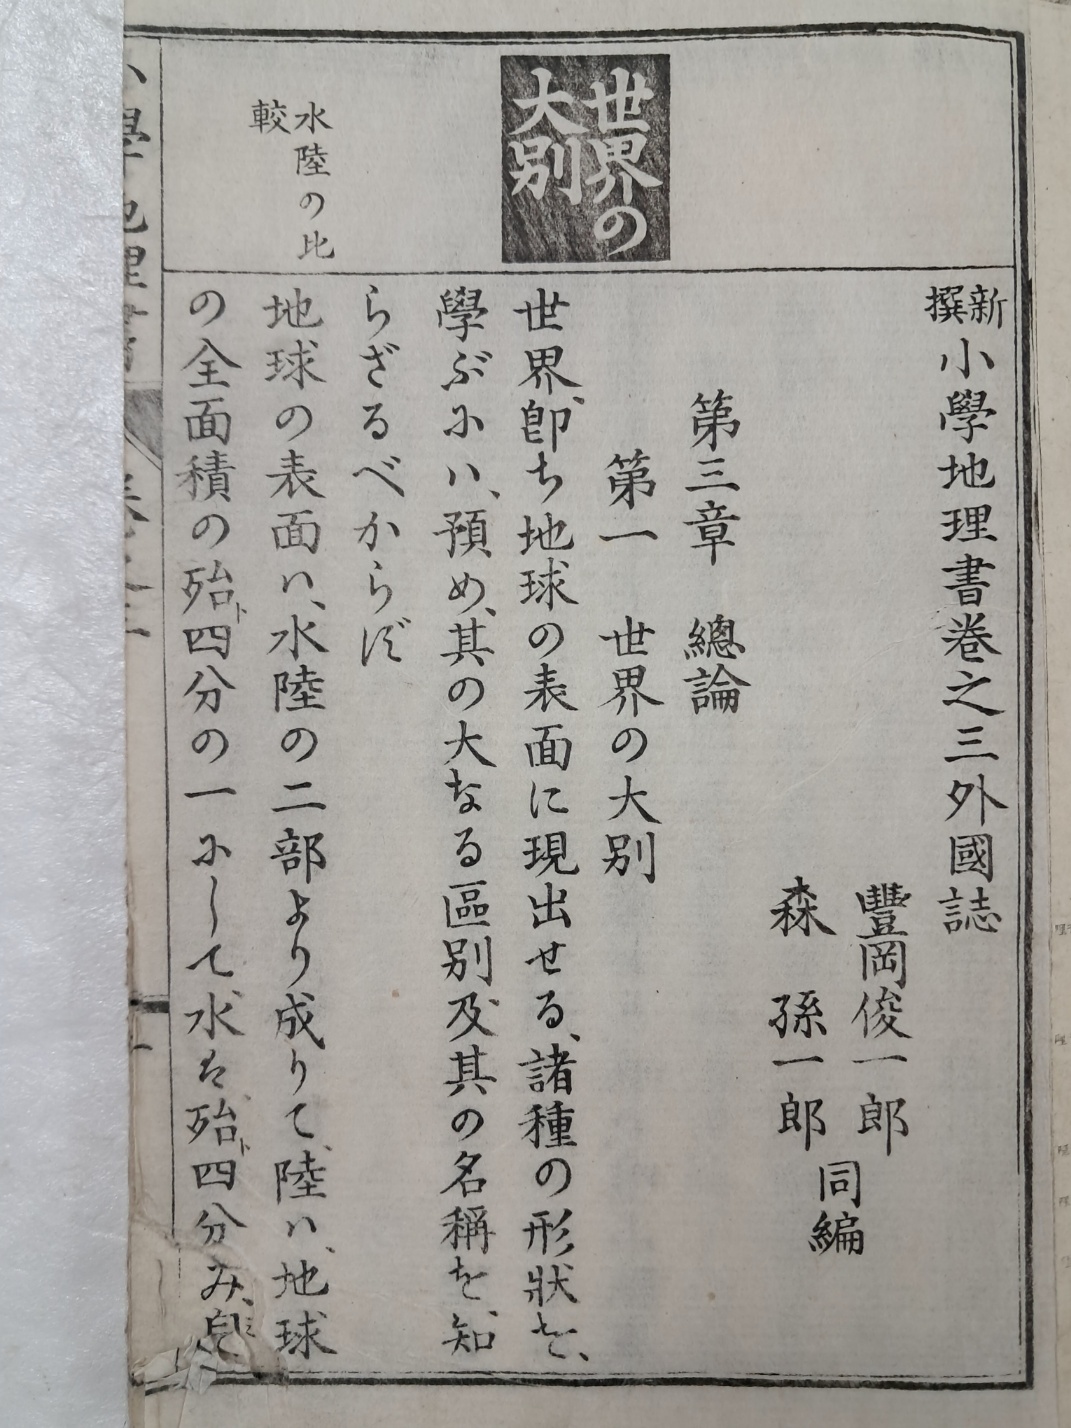 世界の
大別
水陸の比
較
新撰小學地理書卷之三外國誌
豐岡俊一郎
森 孫一郎
同編
第三章 總論
第一 世界の大別
世界、卽ち地球の表面に現出せる、諸種の形狀を、
學ぶにハ、預め、其の大なる區別及其の名稱を、知
らざるべからず
地球の表面ハ、水陸の二部より成りて、陸ハ、地球
の全面積の殆ト四分の一にして、水は、殆ト四分